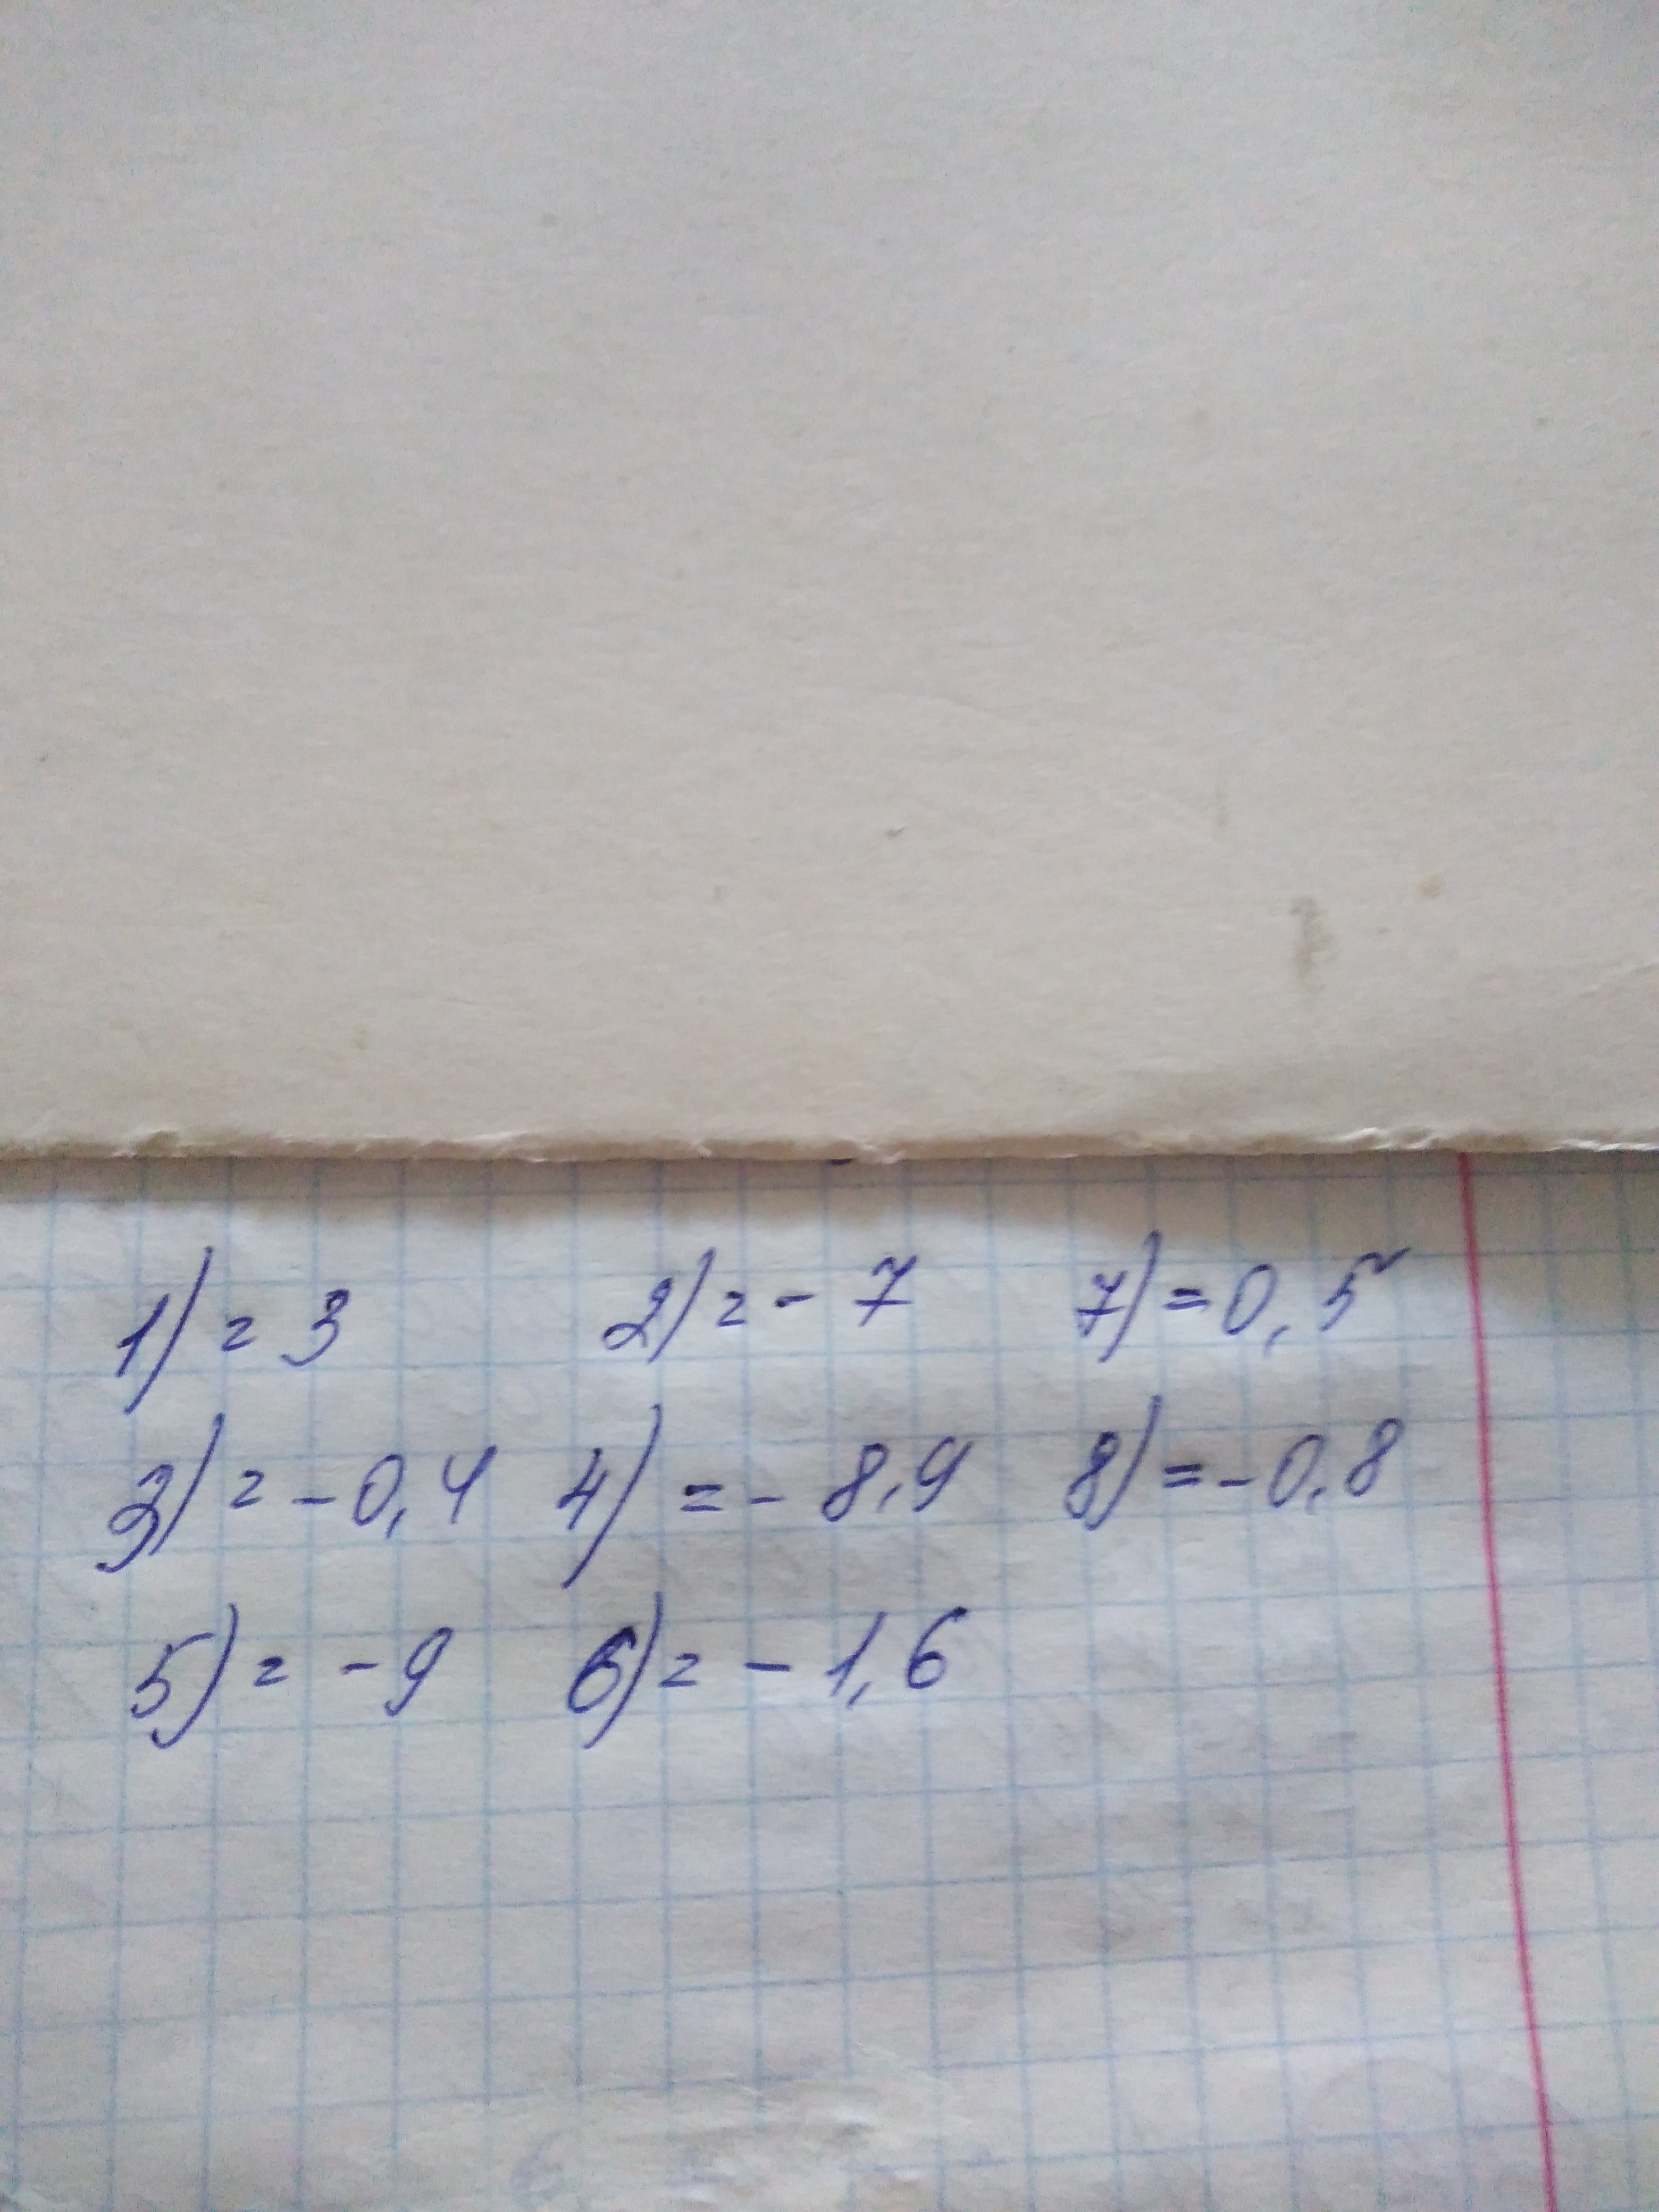 1) = 3 2) = - 7 7) = 0,5
3) = - 0,4 4) = - 8,9 8) = - 0,8
5) = - 9 6) = - 1,6